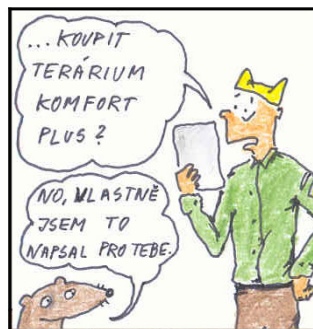 ...KOUPIT
TERÁRIUM
KOMFORT
PLUS?
NO, VLASTNĚ
JSEM TO
NAPSAL PRO TEBE.